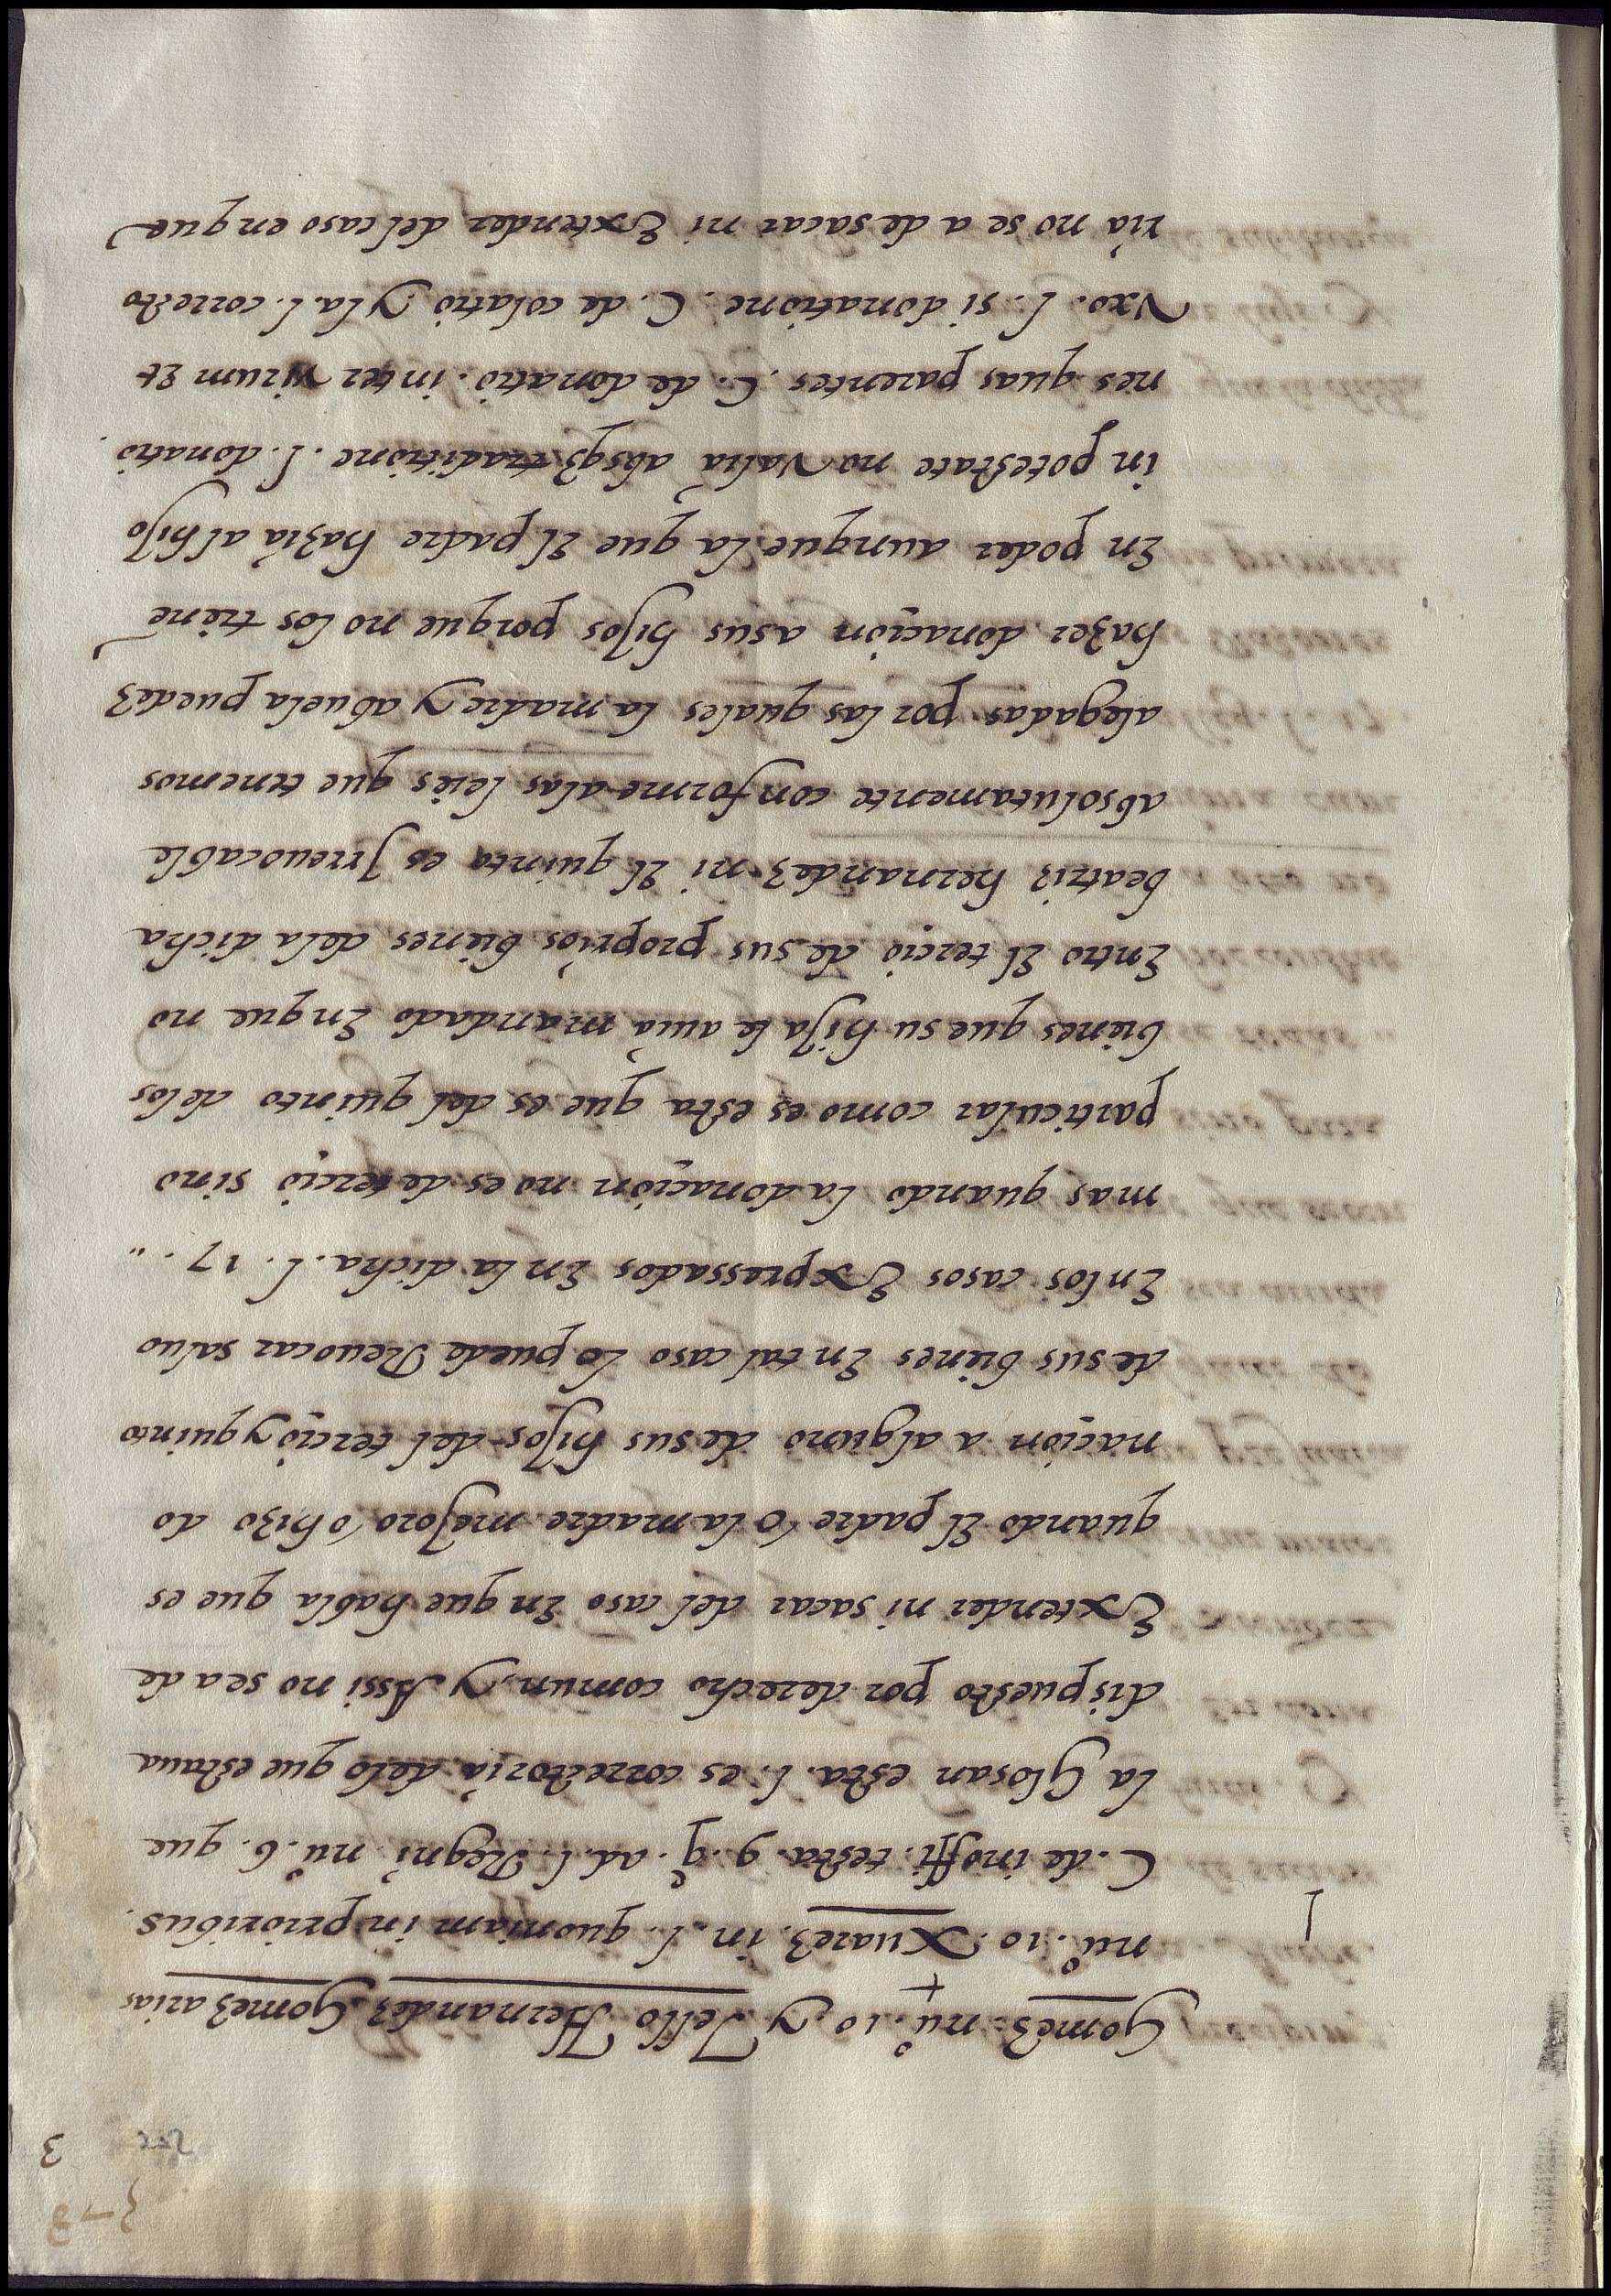 3
Gomez. nu.º 10. y Tello Hernandez Gomez arias
nu.º 10. Xuarez. in. l. quoniam in prioribus.
C. de inoffi. testa. 9. q.ª ad. l. Regni. nu.º 6. que
la Glosan esta. l. es correctoria delo que estaua
dispuesto por derecho comun, y Assi no sea de
Extender ni sacar del caso En que habla que es
quando El padre o la madre mejoro o hizo do
naçion a alguno de sus hijos del terçio y quinto
de sus bienes En tal caso lo pueda Reuocar saluo
En los casos Expressados En la dicha. l. 17. ..
mas quando la donaçion no es de terçio sino
particular como es esta que es del quinto delos
bienes que su hija le auia mandado En que no
Entro El terçio de sus proprios bienes dela dicha
beatriz hernandez ni El quinto es Jrreuocable
absolutamente conforme alas leies que tenemos
alegadas por las quales la madre y abuela puedē
hazer donaçion a sus hijos porque no los tienē
En poder aunque la que El padre hazia al hijo
in potestate no Valia absqz traditione. l. donatio
nes quas parentes. C. de donatio. inter virum Et
Vxo. l. si donatione. C. de colatio. y la. l. correcto
ria no se a de sacar ni Extender del caso en que